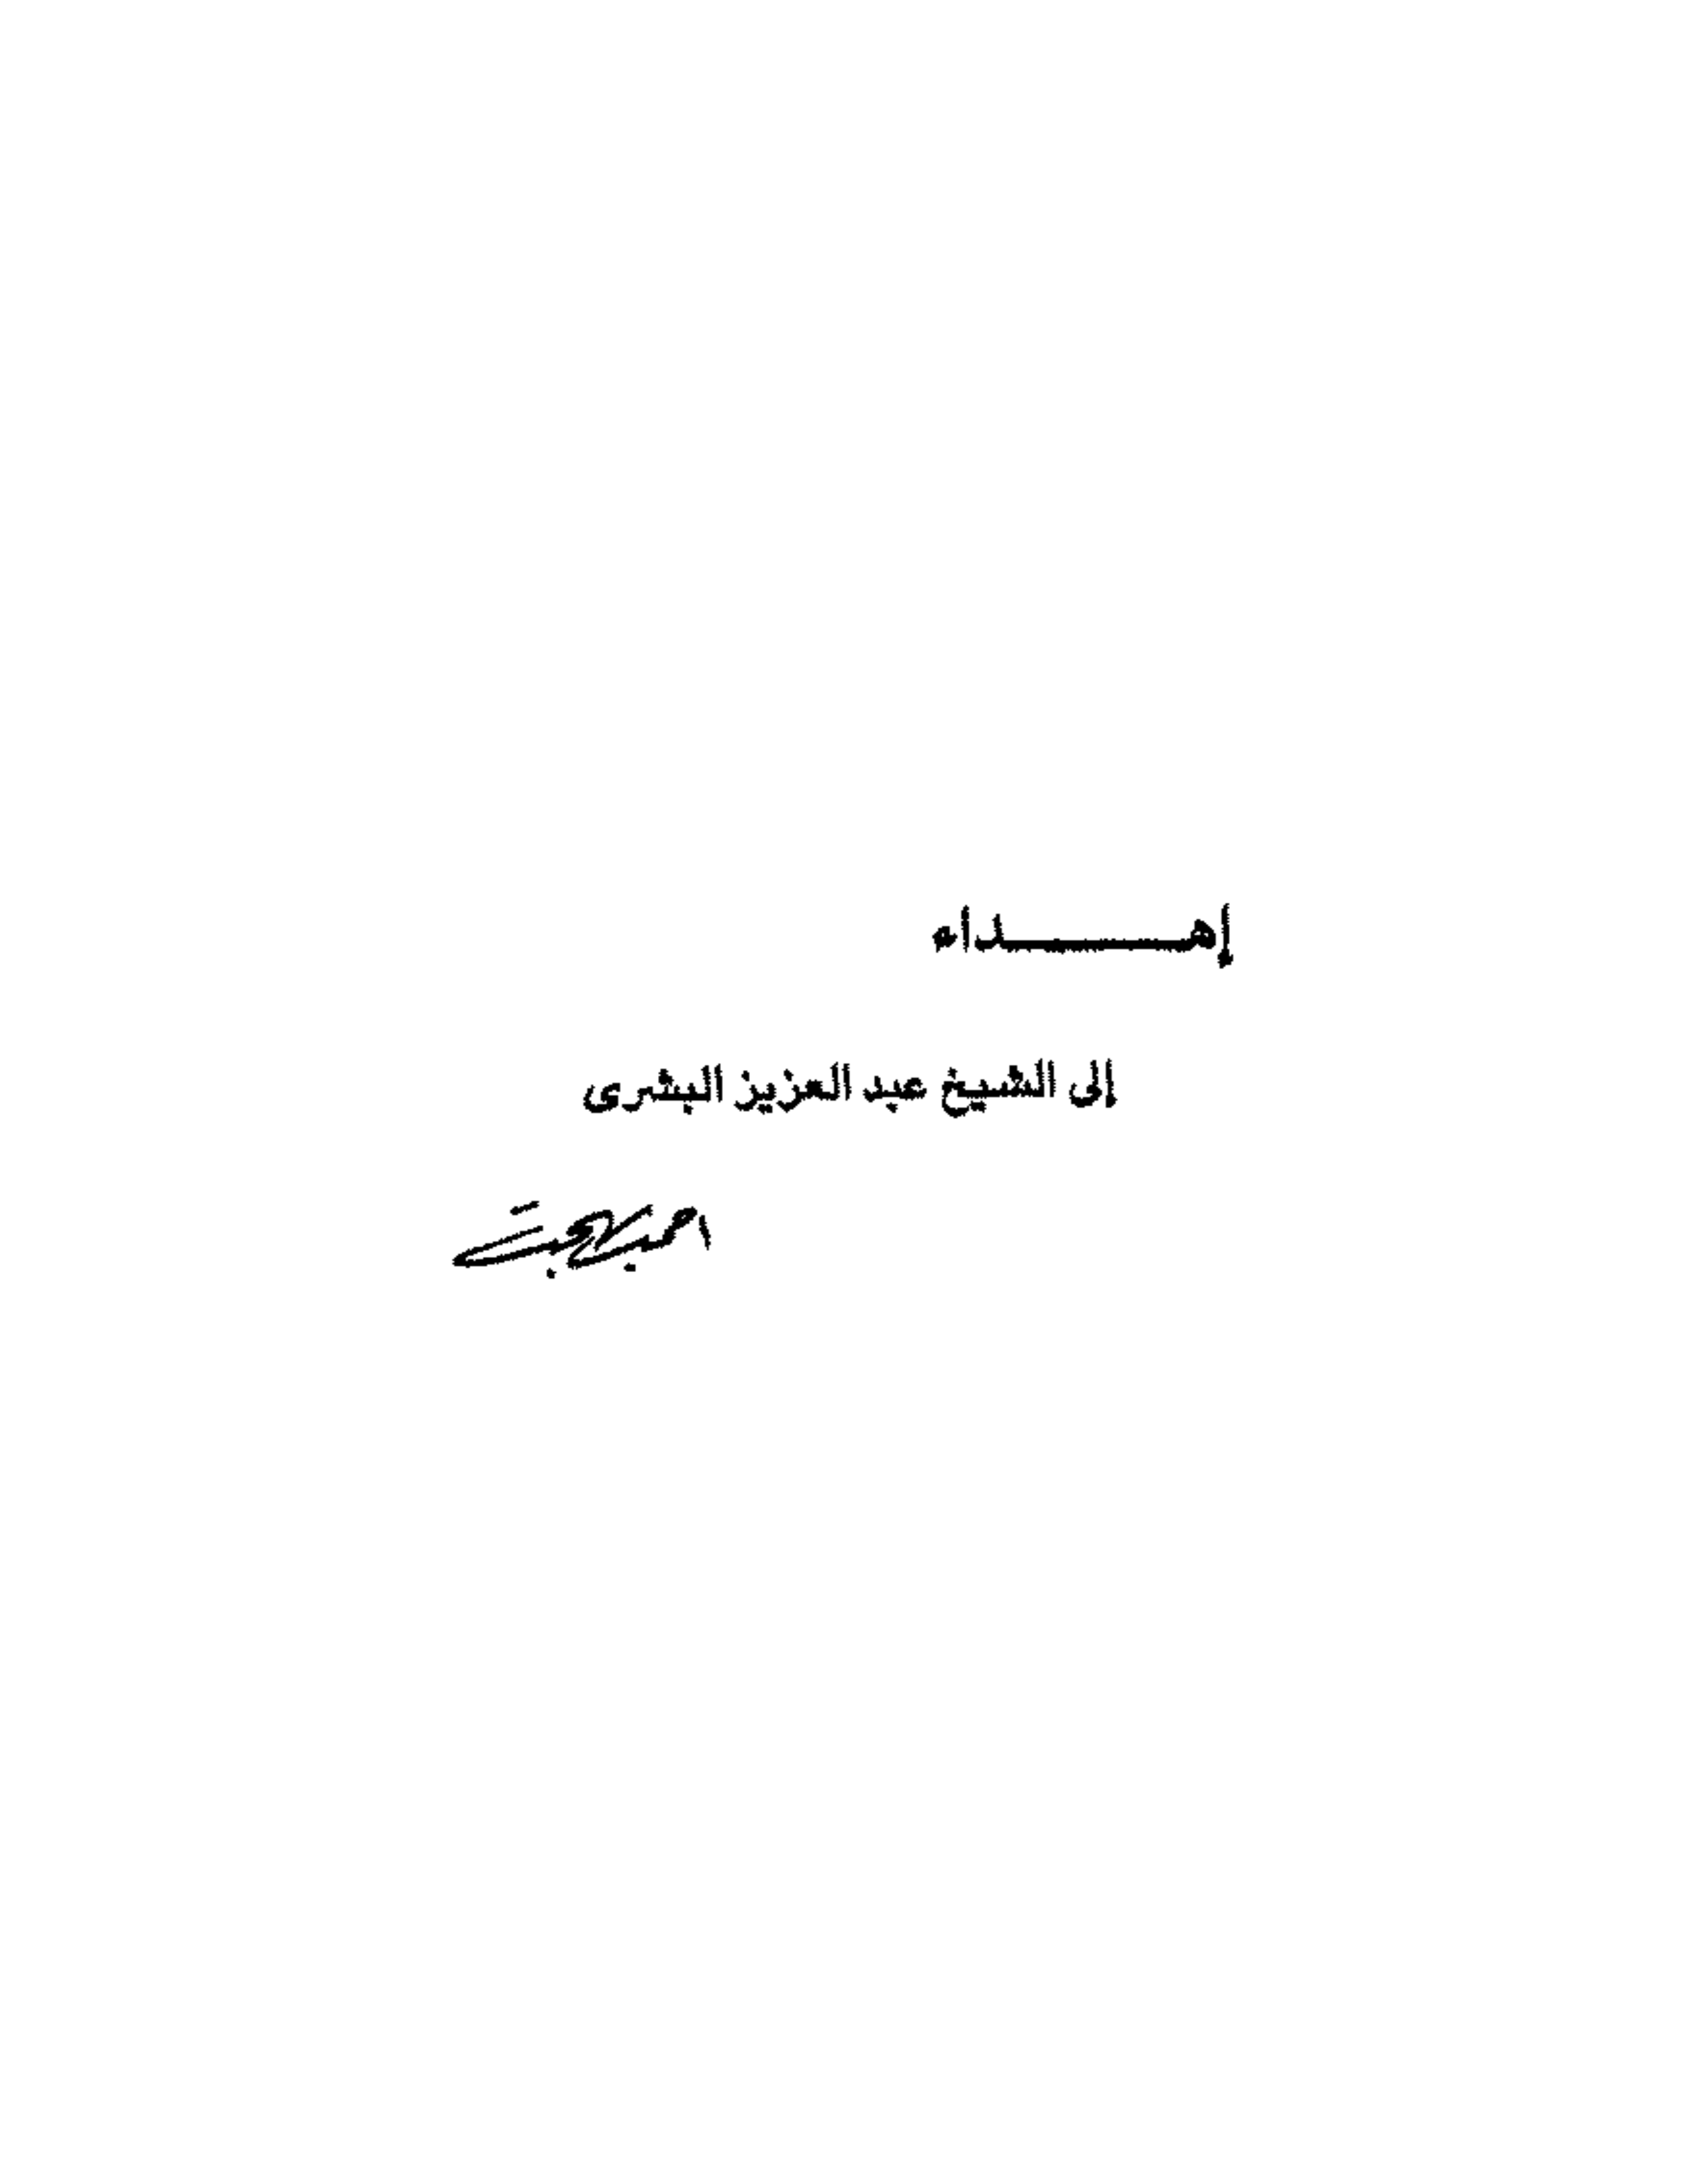 إهـــــداء
إلى الشيخ عبد العزيز البشرى
أحمد بهجت